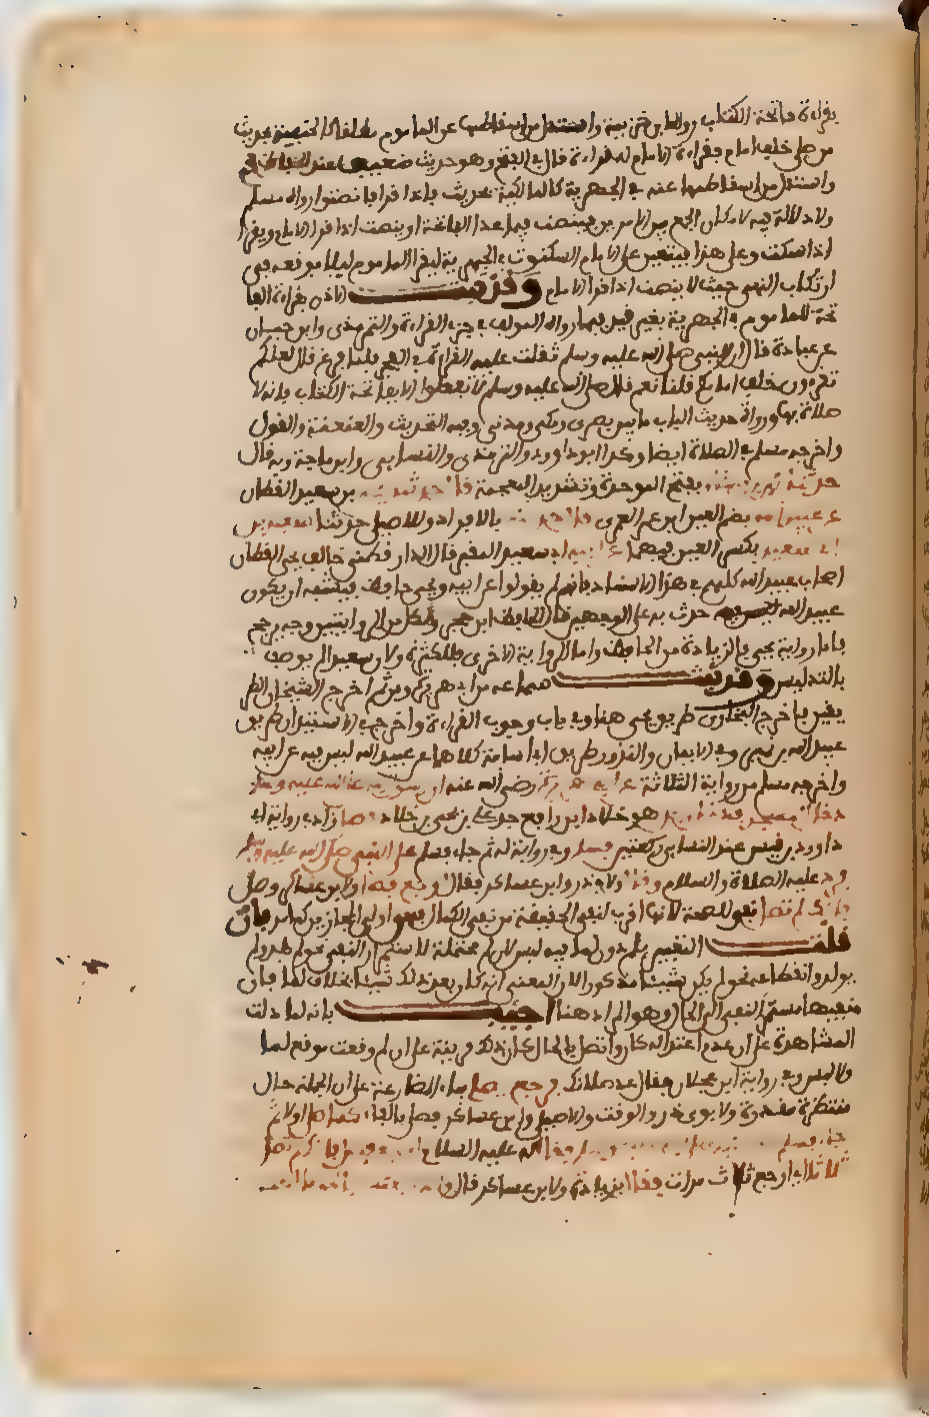 بقراءة فاتحة الكتاب رواه ابن خزيمة واستدل من اسقطها عن الماموم مطلقا كالحنفية بحديث
من صلى خلف امام فقراءة الامام له قراءة قال في الفتح وهو حديث ضعيف عند الحفاظ
واستدل من اسقطها عنه في الجهرية كالمالكية بحديث فاذا قرا فانصتوا رواه مسلم
ولا دلالة فيه لامكان الجمع بين الامرين فينصت فيما عدا الفاتحة او ينصت اذا قرا الامام ويقرا
اذا سكت وعلى هذا فيتعين على الامام السكوت في الجهرية ليقرا الماموم ليلا يوقعه في
ارتكاب النهي حيث لا ينصت اذا قرا الامام وقد ثبت الاذن بقراءة الفا
تحة للماموم في الجهرية بغير قيد فيما رواه المولف في جزء القراءة والترمذي وابن حبان
عن عبادة قال ان النبي صلى الله عليه وسلم ثقلت عليه القراءة في الفجر فلما فرغ قال لعلكم
تقرءون خلف امامكم قلنا نعم قال صلى الله عليه وسلم لا تفعلوا الا بفاتحة الكتاب فانه لا
صلاة بها ورواة حديث الباب ما بين بصري ومكي ومدني وفيه التحديث والعنعنة والقول
واخرجه مسلم في الصلاة ايضا وكذا ابو داوود والترمذي والنسايي وابن ماجة وبه قال
حدثنا محمد بن بشار بفتح الموحدة وتشديد المعجمة قال حدثنا يحيى بن سعيد القطان
عن عبيد الله بضم العين ابن عمر العمري قال حدثني بالافراد وللاصيلي حدثنا سعيد بن
ابي سعيد بكسر العين فيهما عن ابيه ابي سعيد المقبري قال الدارقطني خالف يحيى القطان
اصحاب عبيد الله كلهم في هذا الاسناد فانهم لم يقولوا عن ابيه ويحيى حافظ فيشبه ان يكون
عبيد الله حدث به على الوجهين قال الحافظ ابن حجر ولكل من الروايتين وجه يرجح
فاما رواية يحيى فالزيادة من الحافظ واما الرواية الاخرى فللكثرة ولان سعيدا لم يوصف
بالتدليس وقد ثبت سماعه من ابي هريرة ومن ثم اخرج الشيخان الطر
يقين فاخرج البخاري طريق يحيى هنا وفي باب وجوب القراءة واخرج في الاستيذان طريق
عبيد الله بن نمير وفي الايمان والنذور طريق ابي اسامة كلاهما عن عبيد الله ليس فيه عن ابيه
واخرجه مسلم من رواية الثلاثة عن ابي هريرة رضي الله عنه ان رسول الله صلى الله عليه وسلم
دخل المسجد فدخل رجل هو خلاد ابن رافع جد علي بن يحيى بن خلاد فصلى زاد في رواية
داوود بن قيس عند النسايي ركعتين فسلم وفي رواية له ثم جاء فسلم على النبي صلى الله عليه وسلم
فرد عليه الصلاة والسلام وقال ولابي ذر وابن عساكر فقال ارجع فصل ولابن عساكر وصل
فانك لم تصل نفي للصحة لانها اقرب لنفي الحقيقة من نفي الكمال فهو اولى المجازين كما مر فان
قلت التعبير بلم دون لما فيه لبس لان لم محتملة لاستمرار النفي نحو لم يلد ولم
يولد وانقطاعه نحو لم يكن شيئا مذكورا لان المعنى انه كان بعد ذلك شيئا بخلاف لما فان
منفيها مستمر النفي الى الحال وهو المراد هنا اجيب بانه لما دلت
المشاهدة على ان عدم اعتداله كان واتصل بالحال كان ذلك قرينة على ان لم وقعت موقع لما
فلا لبس وفي رواية ابن عجلان فقال اعد صلاتك فرجع يصلي بياء المضارعة على ان الجملة حال
منتظرة مقدرة ولابوي ذر والوقت والاصيلي وابن عساكر فصلى بالفاء كما صلى اولا ثم
جاء فسلم على النبي صلى الله عليه وسلم فقال له عليه السلام ارجع فصل فانك لم تصل
ثلاثا اي ارجع ثلاث مرات فقال بزيادة فاء ولابن عساكر قال والذي بعثك بالحق ما احسن